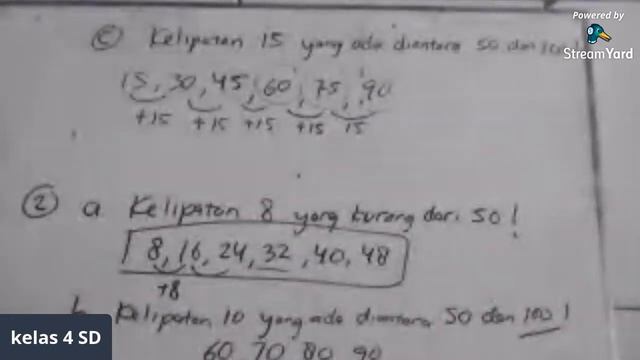 Powered by
StreamYard
c) Kelipatan 15 yang ada diantara 50 dan 100!
15, 30, 45, 60, 75, 90
+15 +15 +15 +15 15
② a Kelipatan 8 yang kurang dari 50!
8, 16, 24, 32, 40, 48
+8
b Kelipatan 10 yang ada diantara 50 dan 100!
60 70 80 90
kelas 4 SD